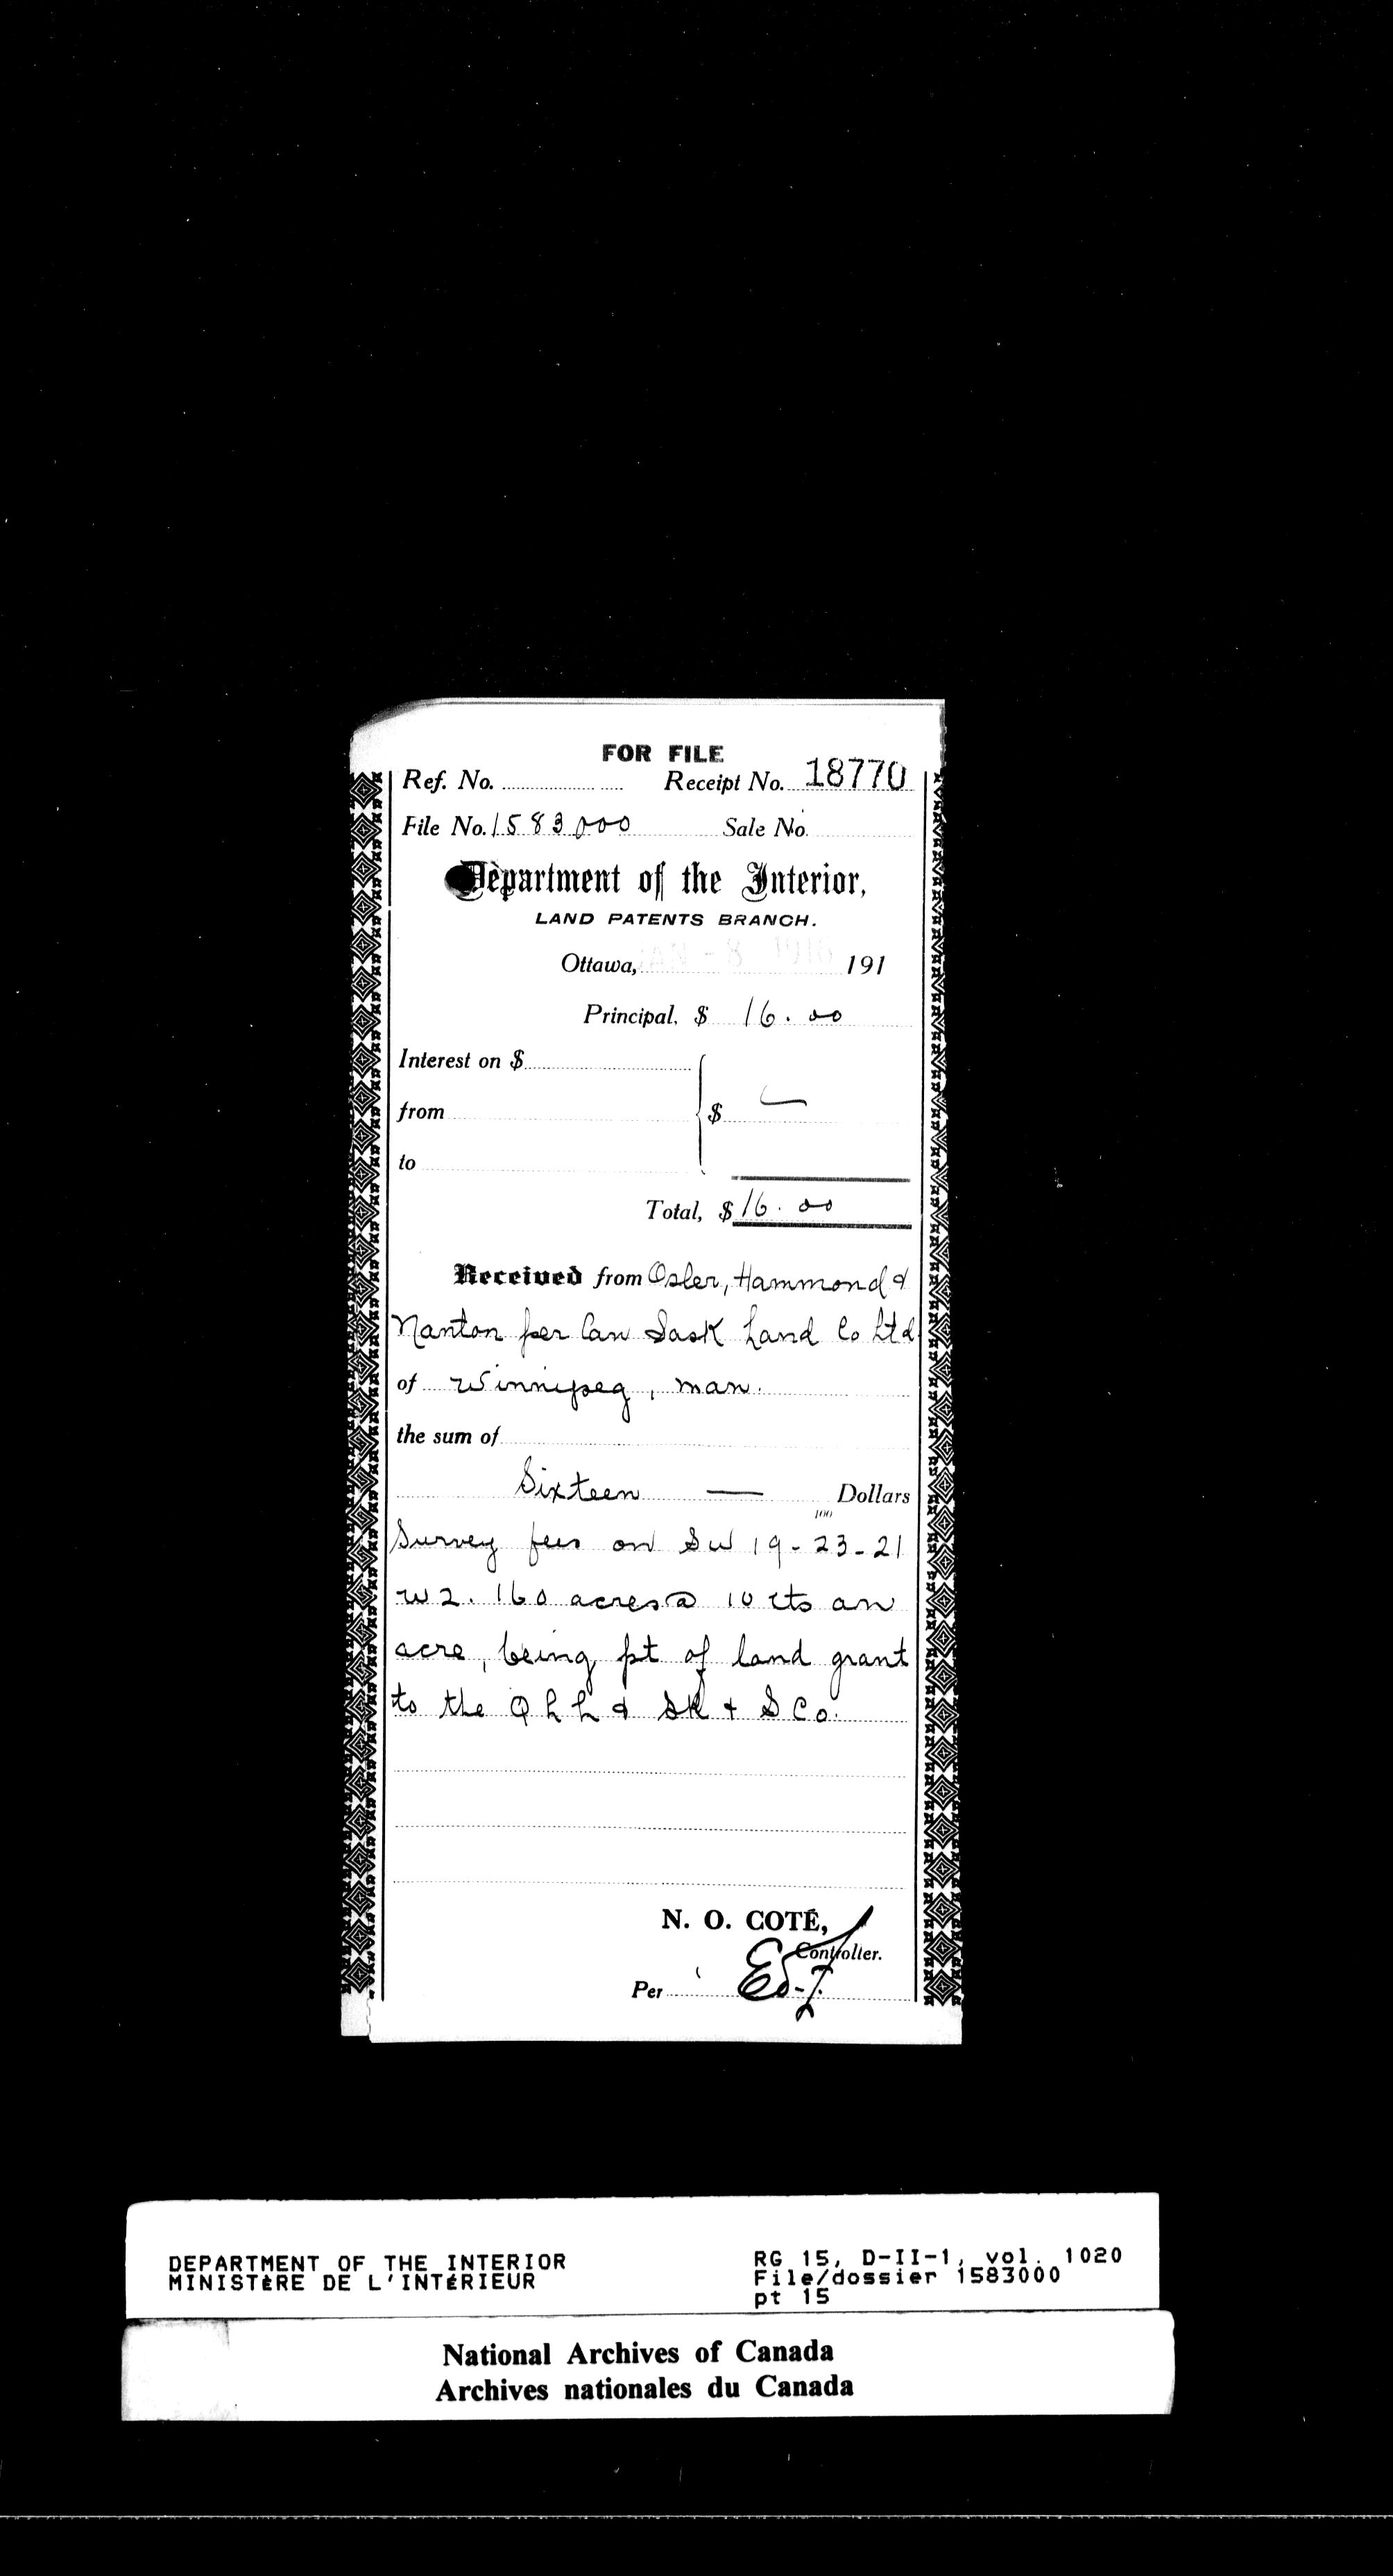 FOR FILE
Ref. No. Receipt No. 18770
File No. 1583000 Sale No.
Department of the Interior,
LAND PATENTS BRANCH.
Ottawa, JAN - 8 191
Principal, $ 16.00
Interest on $
from $ —
to
Total, $ 16.00
Received from Osler, Hammond &
Nanton per Can Sask Land Co Ltd
of Winnipeg, Man.
the sum of
Sixteen — Dollars
100
Survey fees on SW 19-23-21
W2. 160 acres @ 10 cts an
acre, being pt of land grant
to the Q L L & SR & S Co.
N. O. COTÉ,
Controller.
Per
DEPARTMENT OF THE INTERIOR
MINISTÈRE DE L'INTÉRIEUR
RG 15, D-II-1, vol. 1020
File/dossier 1583000
pt 15
National Archives of Canada
Archives nationales du Canada